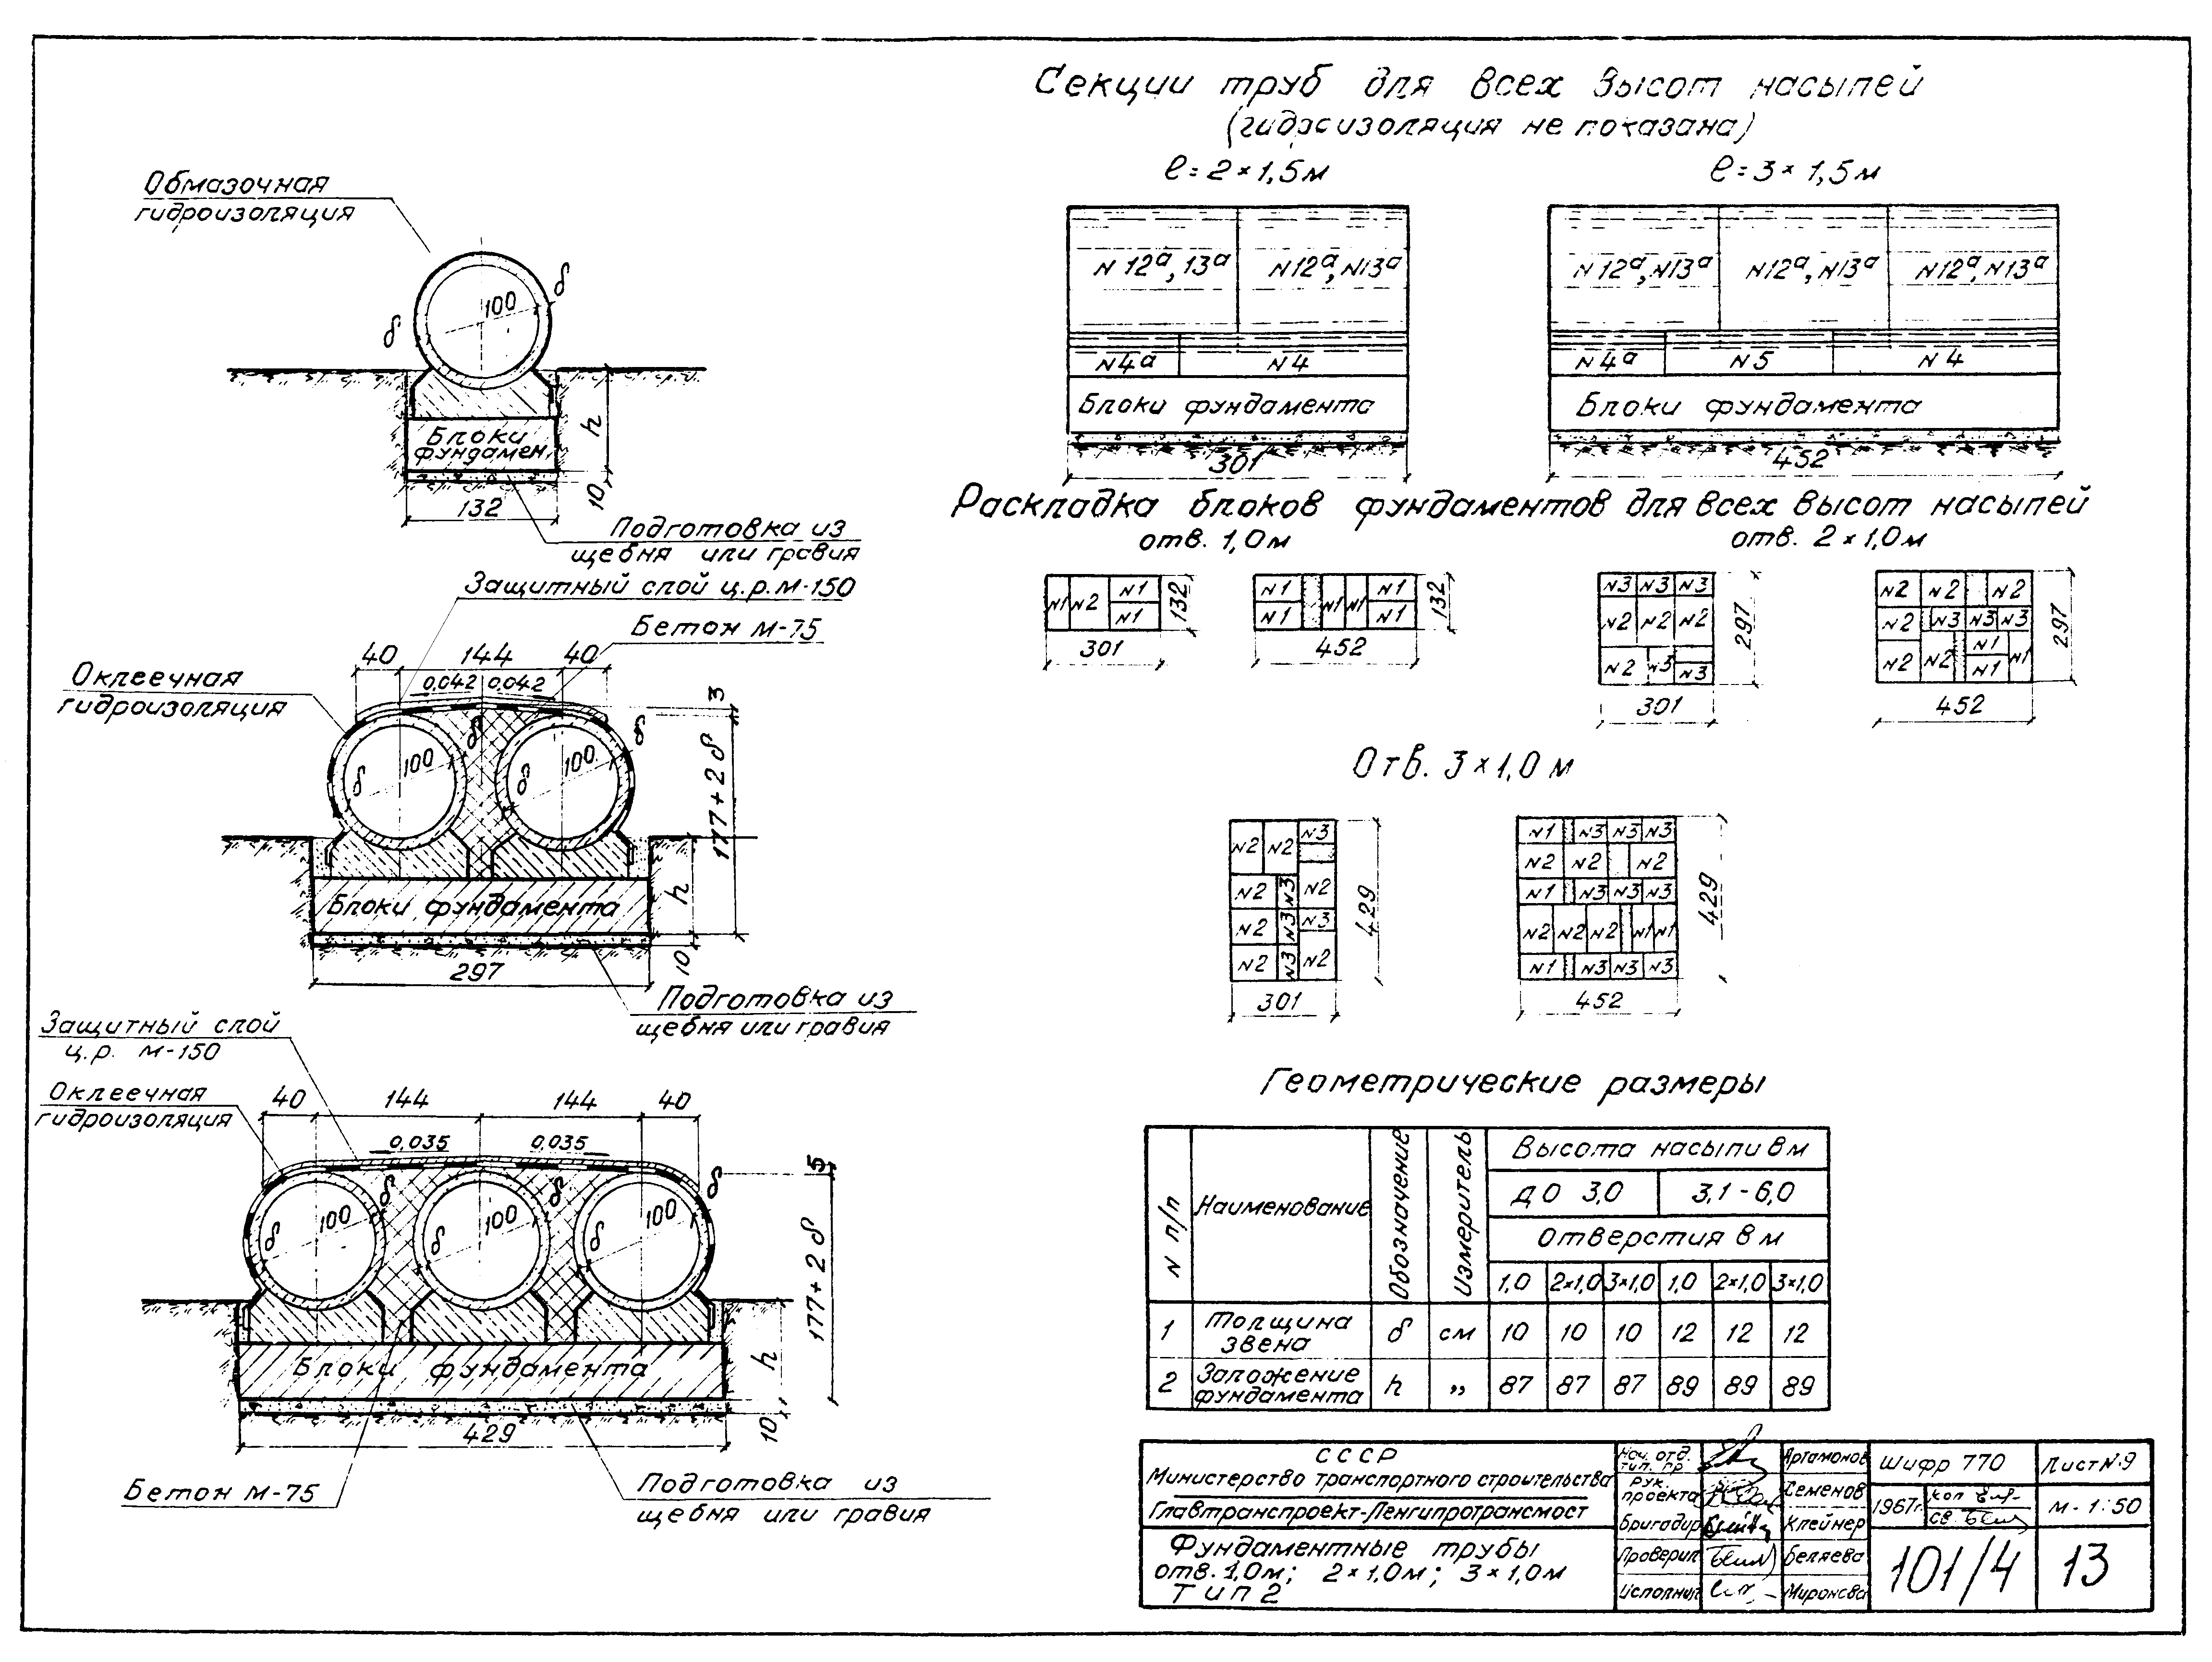 Секции труб для всех высот насыпей
(гидроизоляция не показана)
ℓ=2×1,5м
ℓ=3×1,5м
N12ᵃ,13ᵃ
N12ᵃ,N13ᵃ
N12ᵃ,N13ᵃ
N12ᵃ,N13ᵃ
N12ᵃ,N13ᵃ
N4ᵃ
N4
N4ᵃ
N5
N4
Блоки фундамента
Блоки фундамента
301
452
Обмазочная
гидроизоляция
δ
100
δ
h
Блоки
фундамен.
10
132
Подготовка из
щебня или гравия
Защитный слой ц.р.М-150
Бетон М-75
40
144
40
0,042
0,042
3
Оклеечная
гидроизоляция
δ
δ
100
100
δ
δ
177+2δ
h
Блоки фундамента
10
297
Подготовка из
щебня или гравия
Защитный слой
ц.р. М-150
Оклеечная
гидроизоляция
40
144
144
40
0,035
0,035
5
δ
δ
δ
100
100
100
δ
δ
δ
177+2δ
h
Блоки фундамента
10
429
Бетон М-75
Подготовка из
щебня или гравия
Раскладка блоков фундаментов для всех высот насыпей
отв. 1,0м
отв. 2×1,0м
N1 N2 N1
N1
132
301
N1 N1 N1 N1
N1 N1
132
452
N3 N3 N3
N2 N2 N2
N2 N3 N3
297
301
N2 N2 N2
N2 N3 N3 N3
N2 N2 N1 N1
N1
297
452
Отв. 3×1,0м
N2 N2 N3
N2 N3 N2
N2 N3 N3
N2 N3 N2
429
301
N1 N3 N3 N3
N2 N2 N2
N1 N3 N3 N3
N2 N2 N2 N1 N1
N1 N3 N3 N3
429
452
Геометрические размеры
N п/п
Наименование
Обозначение
Измеритель
Высота насыпи в м
до 3,0
3,1-6,0
Отверстия в м
1,0 2×1,0 3×1,0 1,0 2×1,0 3×1,0
1 Толщина звена δ см 10 10 10 12 12 12
2 Заложение фундамента h „ 87 87 87 89 89 89
СССР
Министерство транспортного строительства
Главтранспроект-Ленгипротрансмост
Фундаментные трубы
отв. 1,0м; 2×1,0м; 3×1,0м
Тип 2
Нач. отд.
тип. пр
Артамонов
Рук.
проекта
Семенов
Бригадир
Клейнер
Проверил
Беляева
Исполнил
Миронова
Шифр 770
Лист N.9
1967г.
коп
св.
М-1:50
101/4
13